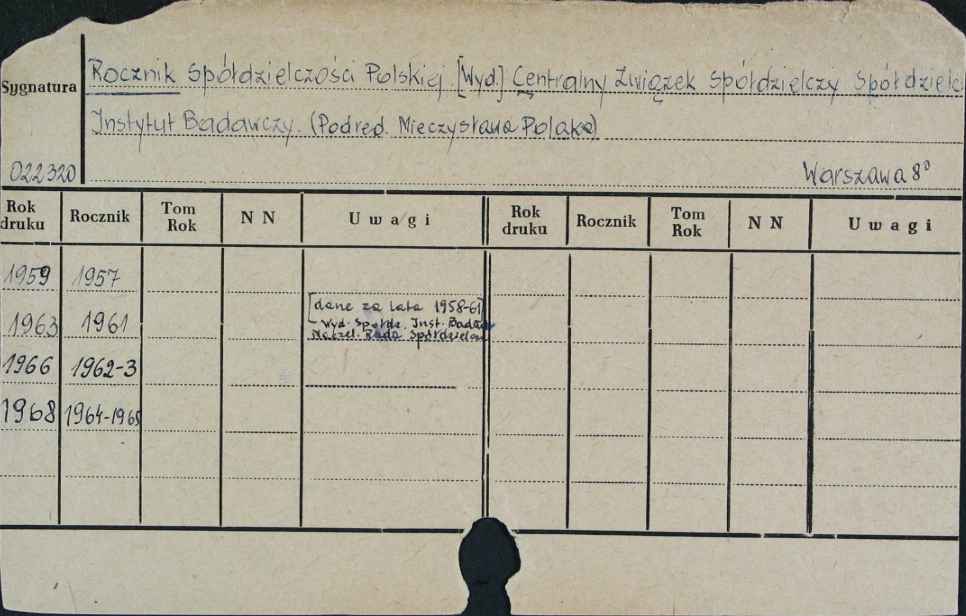 Sygnatura
Rocznik Spółdzielczości Polskiej [Wyd] Centralny Związek Spółdzielczy Spółdzielc
Instytut Badawczy. (Pod red. Mieczysława Polaka)
022320
Warszawa 8°
Rok druku Rocznik Tom Rok N N Uwagi Rok druku Rocznik Tom Rok N N Uwagi
1959 1957
[dane za lata 1958-61]
1963 1961 Wyd. Spółdz. Inst. Badaw
Naczel. Rada Spółdzielcza
1966 1962-3
1968 1964-1965